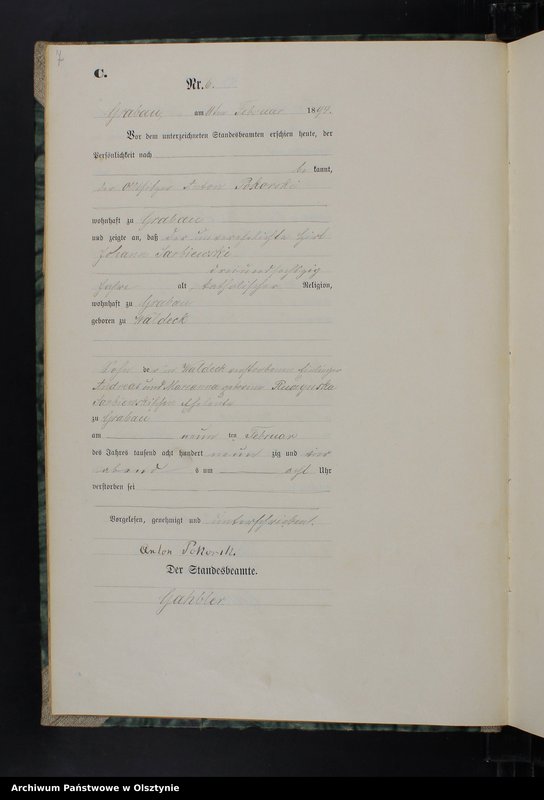 7
C.
Nr. 6.
Grabau, am 11ten Februar 1894.
Vor dem unterzeichneten Standesbeamten erschien heute, der
Persönlichkeit nach
be kannt,
der Altsitzer Anton Pokorski
wohnhaft zu Grabau
und zeigte an, daß der unverehelichte Hirt
Johann Sarbiewski
Jahre alt, katholischer Religion,
wohnhaft zu Grabau
geboren zu Waldeck
Sohn der in Waldeck verstorbenen
Andreas und Marianna geborene
Eheleute
zu Grabau
am neun ten Februar
des Jahres tausend acht hundert neun zig und vier
abend s um acht Uhr
verstorben sei
Vorgelesen, genehmigt und unterschrieben.
Anton Pokorski.
Der Standesbeamte.
Archiwum Państwowe w Olsztynie